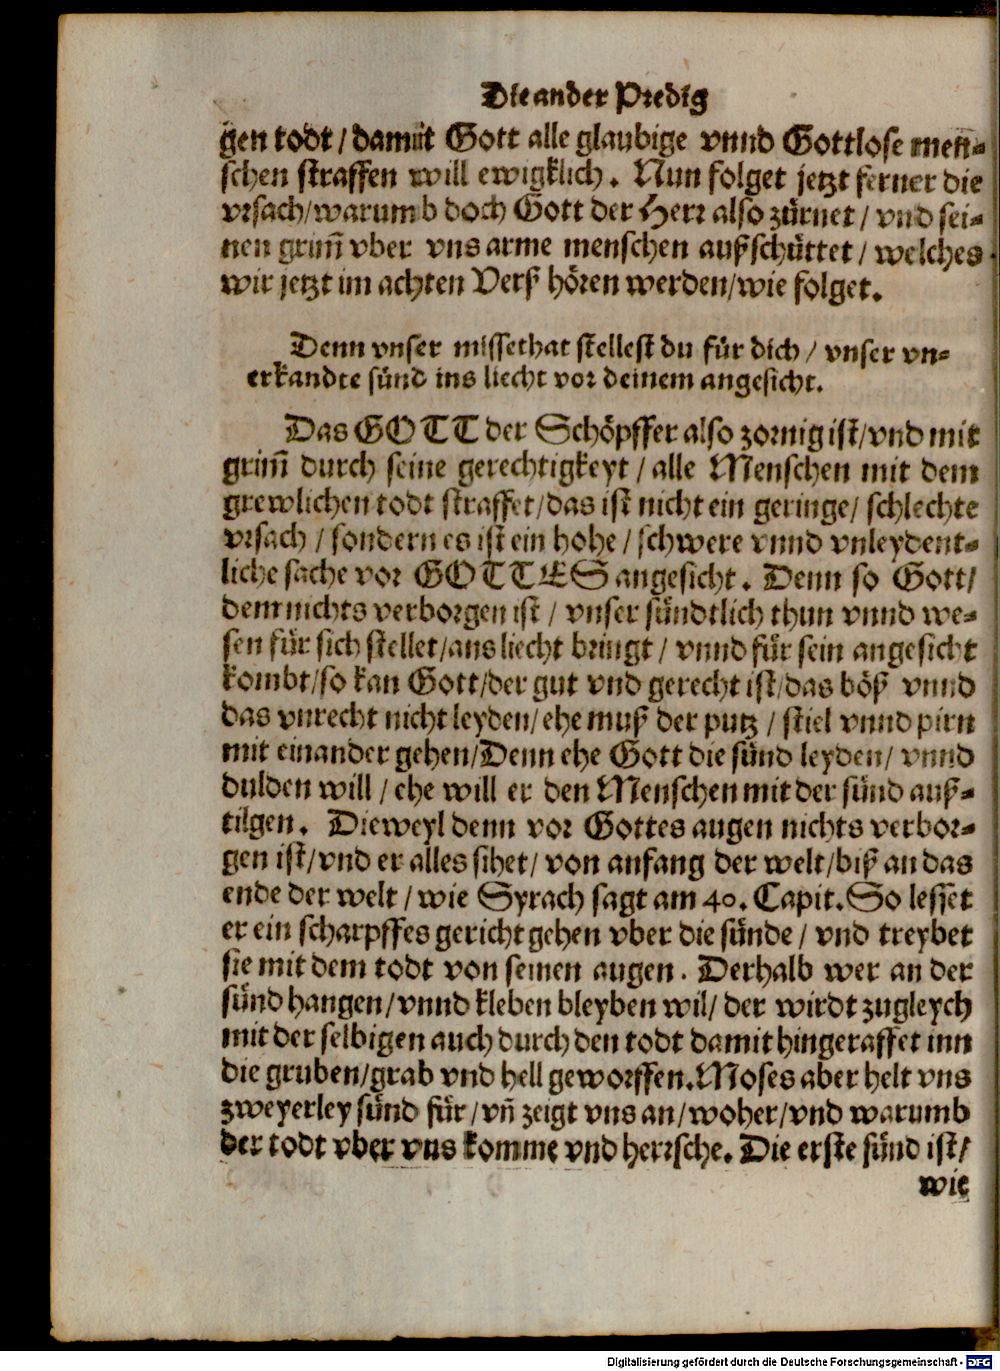 Die ander Predig
gen todt / damit Gott alle glaubige vnnd Gottlose men-
schen straffen will ewigklich. Nun folget jetzt ferner die
vrsach/warumb doch Gott der Herr also zürnet / vnd sei-
nen grim̄ vber vns arme menschen außschüttet / welches
wir jetzt im achten Verß hören werden/wie folget.
Denn vnser missethat stellest du für dich / vnser vn-
erkandte sünd ins liecht vor deinem angesicht.
Das GOTT der Schöpffer also zornig ist/vnd mit
grim̄ durch seine gerechtigkeyt / alle Menschen mit dem
grewlichen todt straffet/das ist nicht ein geringe/ schlechte
vrsach / sondern es ist ein hohe / schwere vnnd vnleydent-
liche sache vor GOTTES angesicht. Denn so Gott/
dem nichts verborgen ist / vnser sündtlich thun vnnd we-
sen für sich stellet/ans liecht bringt / vnnd für sein angesicht
kombt/so kan Gott/der gut vnd gerecht ist/das böß vnnd
das vnrecht nicht leyden/ehe muß der putz / stiel vnnd pirn
mit einander gehen/Denn ehe Gott die sünd leyden/ vnnd
dulden will / ehe will er den Menschen mit der sünd auß-
tilgen. Dieweyl denn vor Gottes augen nichts verbor-
gen ist/vnd er alles sihet/ von anfang der welt/biß an das
ende der welt / wie Syrach sagt am 40. Capit. So lesset
er ein scharpffes gericht gehen vber die sünde / vnd treybet
sie mit dem todt von seinen augen. Derhalb wer an der
sünd hangen/vnnd kleben bleyben wil/ der wirdt zugleych
mit der selbigen auch durch den todt damit hingeraffet inn
die gruben/grab vnd hell geworffen. Moses aber helt vns
zweyerley sünd für/vn̄ zeigt vns an/woher/vnd warumb
der todt vber vns komme vnd herrsche. Die erste sünd ist/
wie
Digitalisierung gefördert durch die Deutsche Forschungsgemeinschaft - DFG